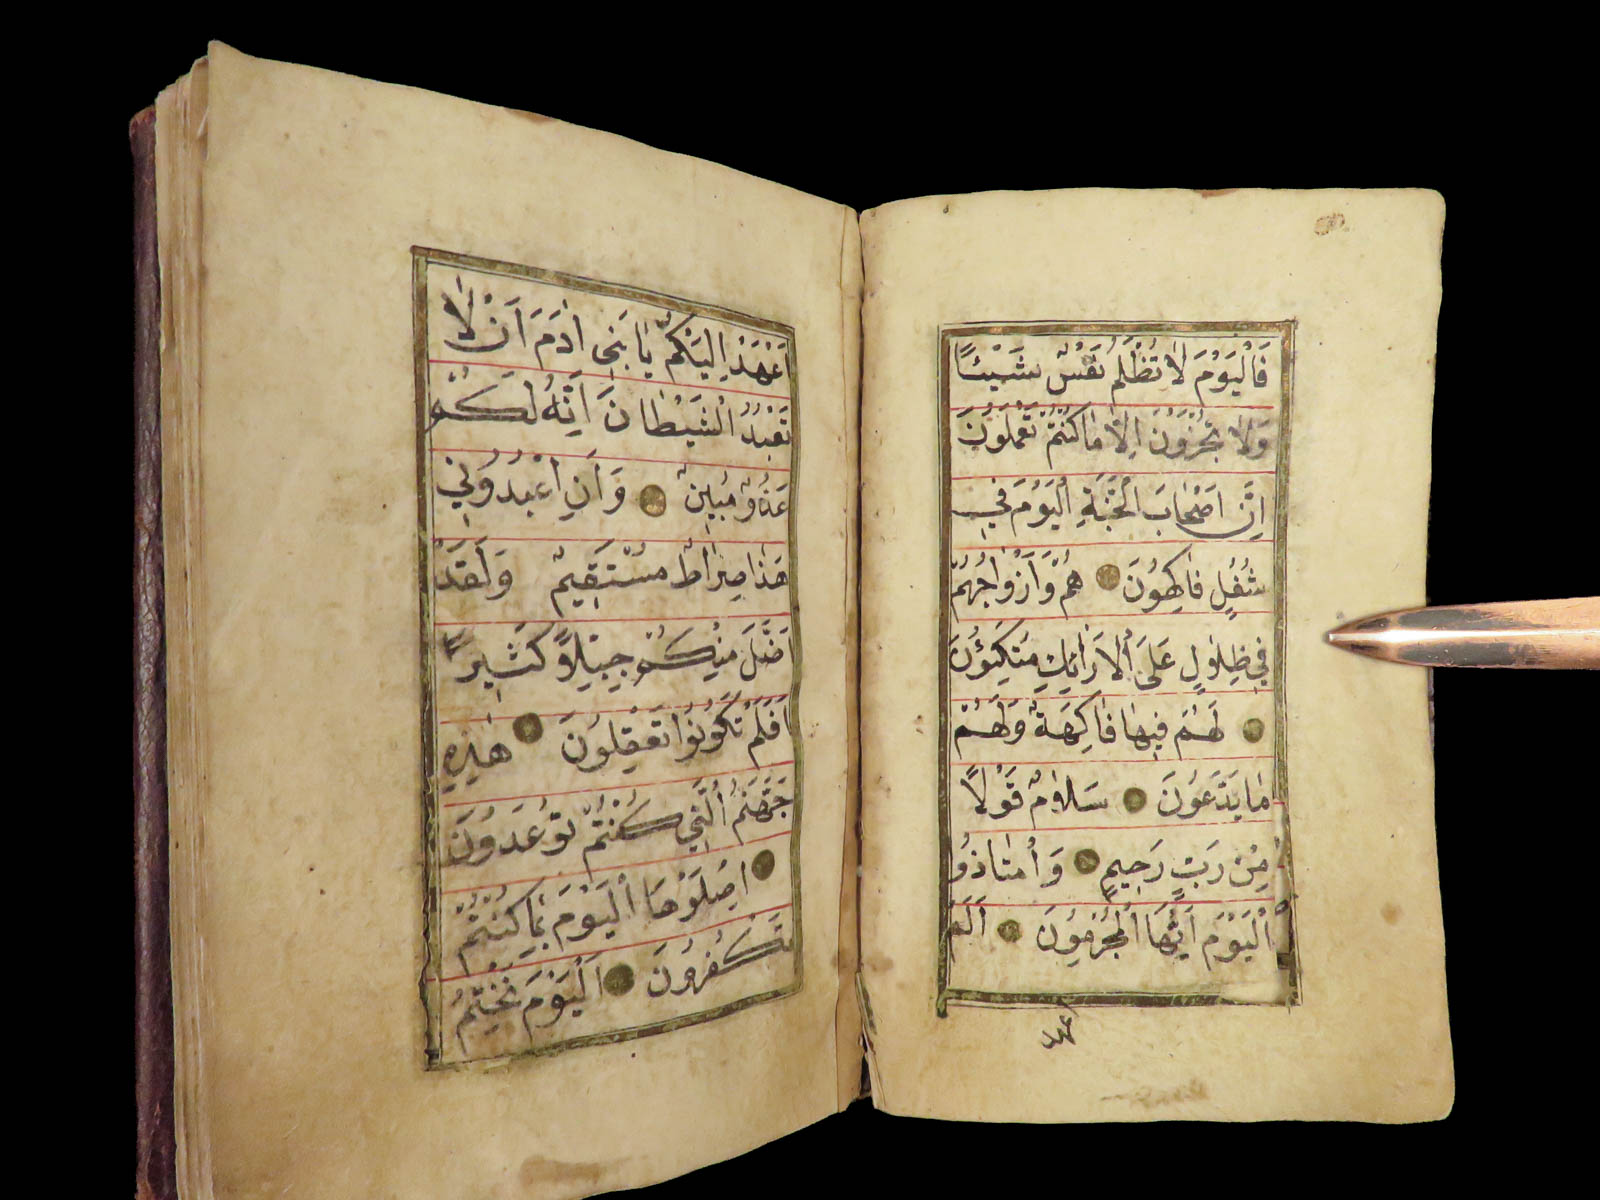 فَالْيَوْمَ لَا تُظْلَمُ نَفْسٌ شَيْئًا
وَلَا تُجْزَوْنَ اِلَّا مَا كُنْتُمْ تَعْمَلُونَ
اِنَّ اَصْحَابَ الْجَنَّةِ الْيَوْمَ فِي
شُغُلٍ فَاكِهُونَ هُمْ وَاَزْوَاجُهُمْ
فِي ظِلَالٍ عَلَى الْاَرَائِكِ مُتَّكِؤُنَ
لَهُمْ فِيهَا فَاكِهَةٌ وَلَهُمْ
مَا يَدَّعُونَ سَلَامٌ قَوْلًا
مِنْ رَبٍّ رَحِيمٍ وَامْتَاذُوا
الْيَوْمَ اَيُّهَا الْمُجْرِمُونَ اَلَمْ
اعهد
اَعْهَدْ اِلَيْكُمْ يَا بَنِى اٰدَمَ اَنْ لَا
تَعْبُدُ الشَّيْطَانَ اِنَّهُ لَكُمْ
عَدُوٌّ مُبِينٌ وَاَنِ اعْبُدُونِي
هَذَا صِرَاطٌ مُسْتَقِيمٌ وَلَقَدْ
اَضَلَّ مِنْكُمْ جِبِلًّا كَثِيرًا
اَفَلَمْ تَكُونُوا تَعْقِلُونَ هٰذِهِ
جَهَنَّمُ الَّتِي كُنْتُمْ تُوعَدُونَ
اِصْلَوْهَا الْيَوْمَ بِمَا كُنْتُمْ
تَكْفُرُونَ اَلْيَوْمَ نَخْتِمُ